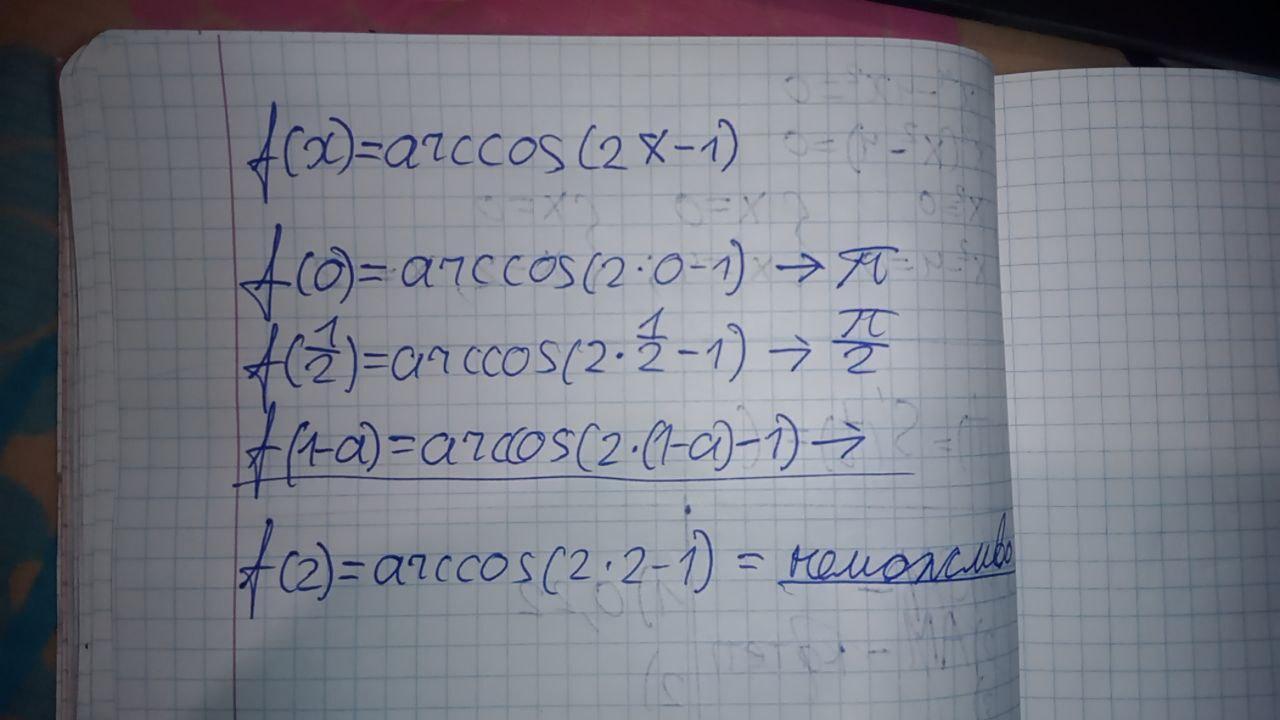 f(x)=arccos(2x-1)
f(0)=arccos(2·0-1) → π
f(1/2)=arccos(2·1/2-1) → π/2
f(1-a)=arccos(2·(1-a)-1) →
f(2)=arccos(2·2-1) = неможливо